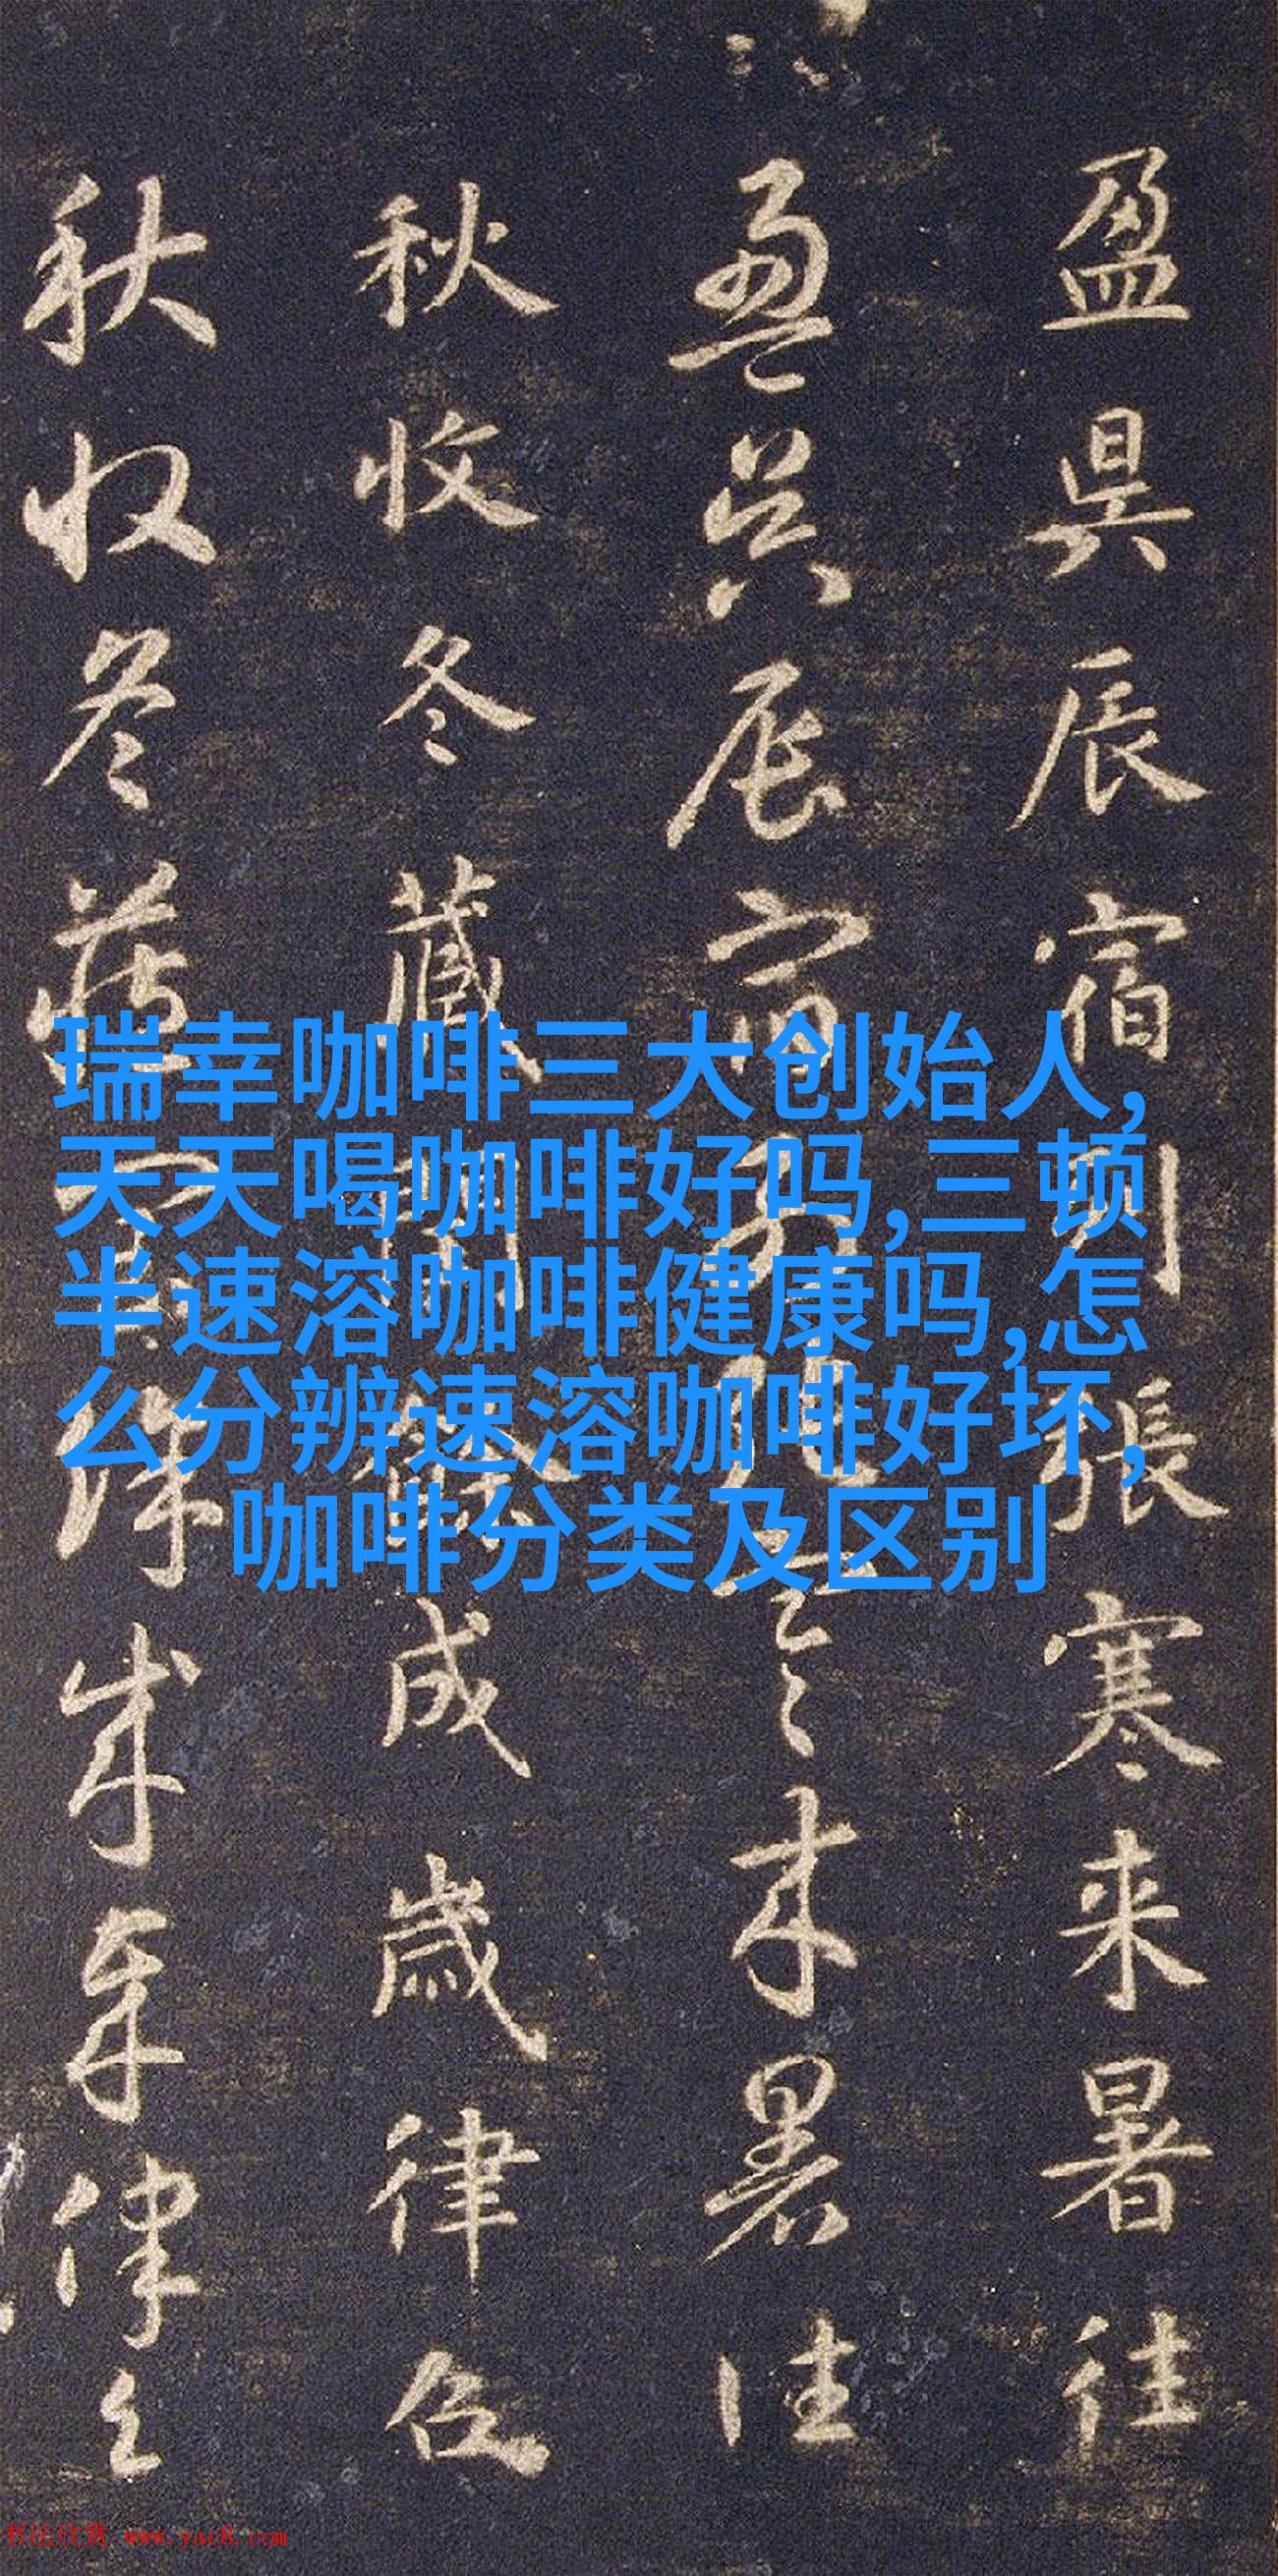 盈昃辰宿列張寒来暑往
盈昃辰宿列張寒来暑往
秋收冬藏閏餘成歲律召
秋收冬藏閏餘成歲律召
瑞幸咖啡三大创始人,
天天喝咖啡好吗,三顿
半速溶咖啡健康吗,怎
么分辨速溶咖啡好坏,
咖啡分类及区别
书法欣赏 www.yac8.com